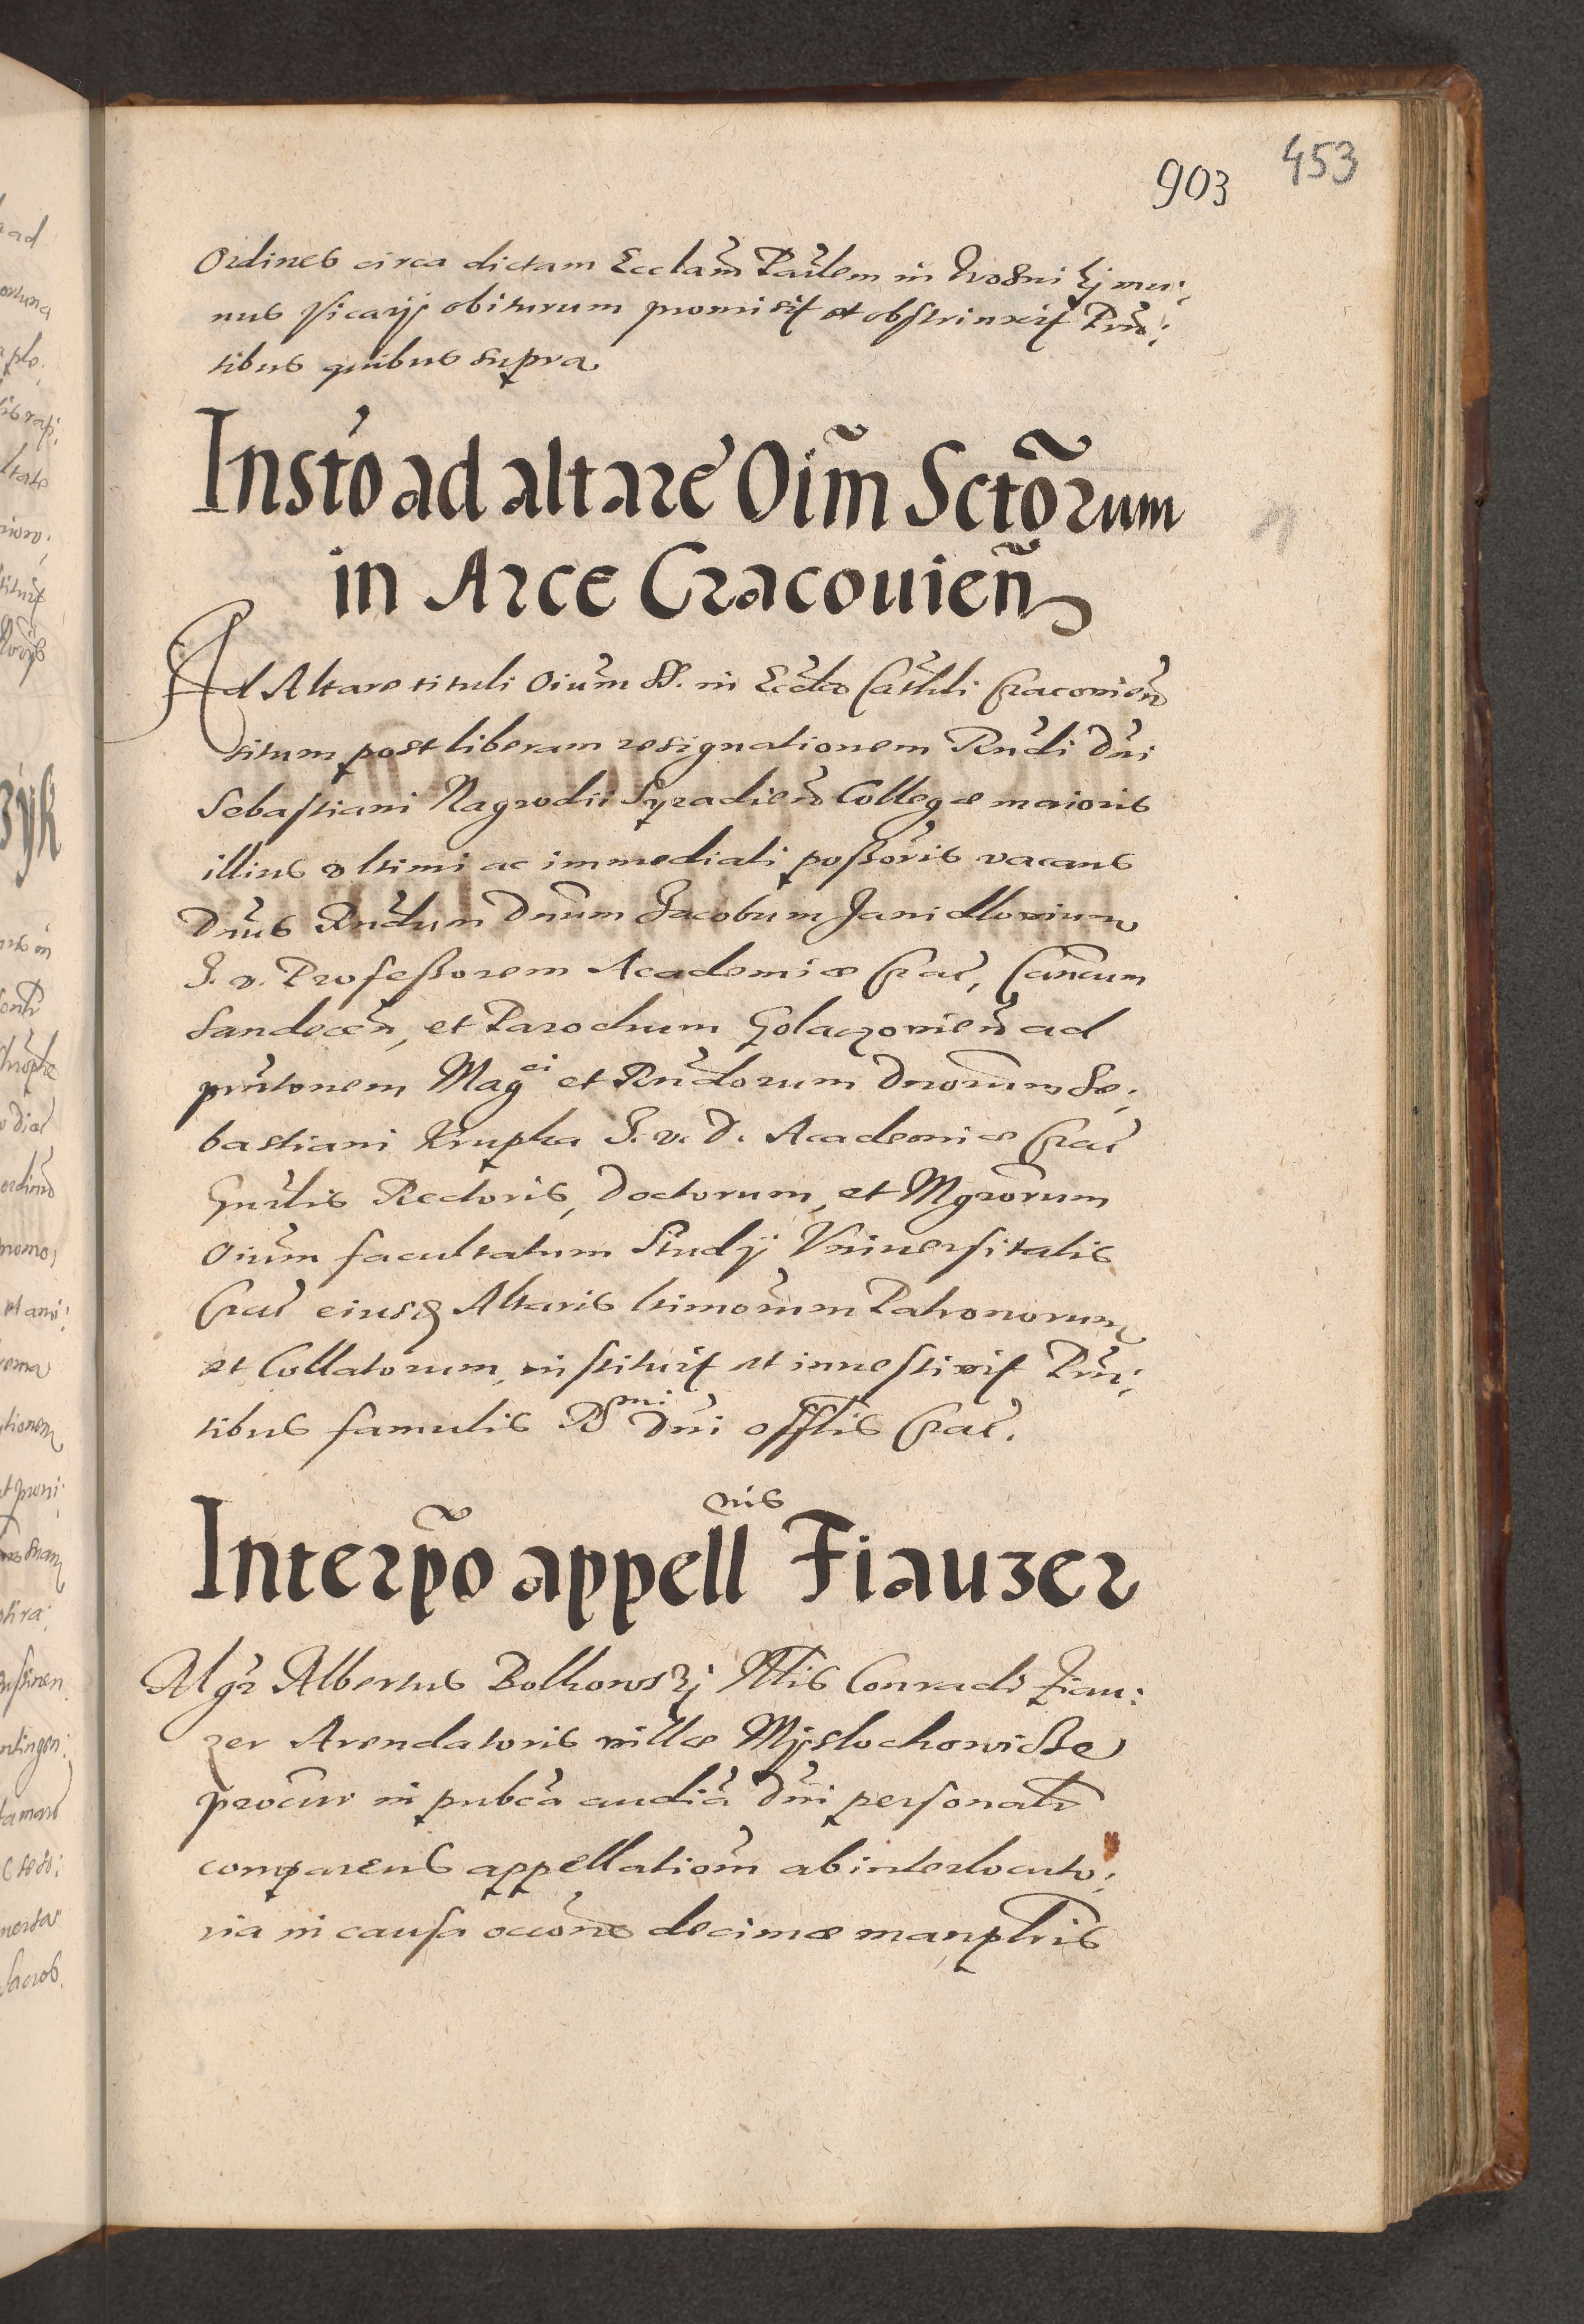 903 453
Ordines circa dictam Ecclam Parlem in Krosni Ej mu:
nus Vicarij obiturum promisit et obstrinxit Prn:
tibus quibus supra
Insto ad altare Oim Sctorum
in Arce Cracouien
Ad Altare tituli Oium SS. in Eccla Cathli Cracouien
situm post liberam resignationem Rndi Dni
Sebastiani Nagrodii Syradien Collegæ maioris
illius vltimi ac immediati possoris vacans
Dnus Rndum Dnum Jacobum Janidlouium
J. v. Professorem Academiæ Crac, Cancum
Sandecen, et Parochum Golaczouien ad
prntonem Magci et Rndorum Dnorum Se:
bastiani Krupka J. v. D. Academiæ Crac
Gnrlis Rectoris, Doctorum, et Mgrorum
Oium facultatum Studij Vniuersitatis
Crac eiusq Altaris ltimorum Patronorum
et Collatorum, instituit et inuestiuit Prn:
tibus famulis Rsmi Dni Offlis Crac.
Interpo appellnis Fiauzer
Mgr Albertus Bolkowskj Nlis Conradi Fiau:
zer Arendatoris villæ Myslochowicze
procur in pubca audia Dni personalr
comparens appellatiom ab interlocuto:
ria in causa occone decimæ manplris